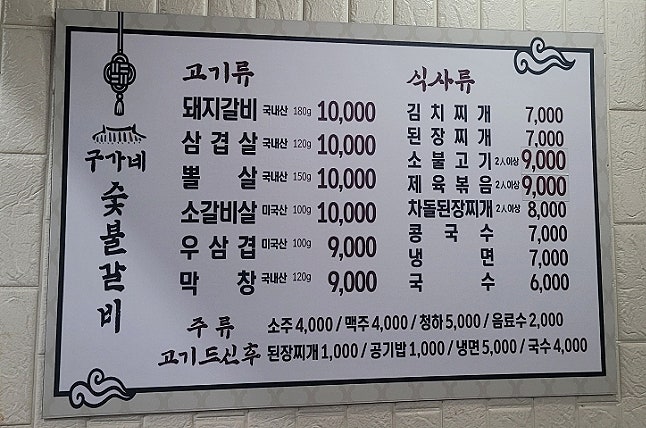 구가네
숯불갈비
고기류
돼지갈비 국내산 180g 10,000
삼겹살 국내산 120g 10,000
뽈살 국내산 150g 10,000
소갈비살 미국산 100g 10,000
우삼겹 미국산 100g 9,000
막창 국내산 120g 9,000
식사류
김치찌개 7,000
된장찌개 7,000
소불고기 2人이상 9,000
제육볶음 2人이상 9,000
차돌된장찌개 2人이상 8,000
콩국수 7,000
냉면 7,000
국수 6,000
주류 소주 4,000 / 맥주 4,000 / 청하 5,000 / 음료수 2,000
고기드신후 된장찌개 1,000 / 공기밥 1,000 / 냉면 5,000 / 국수 4,000